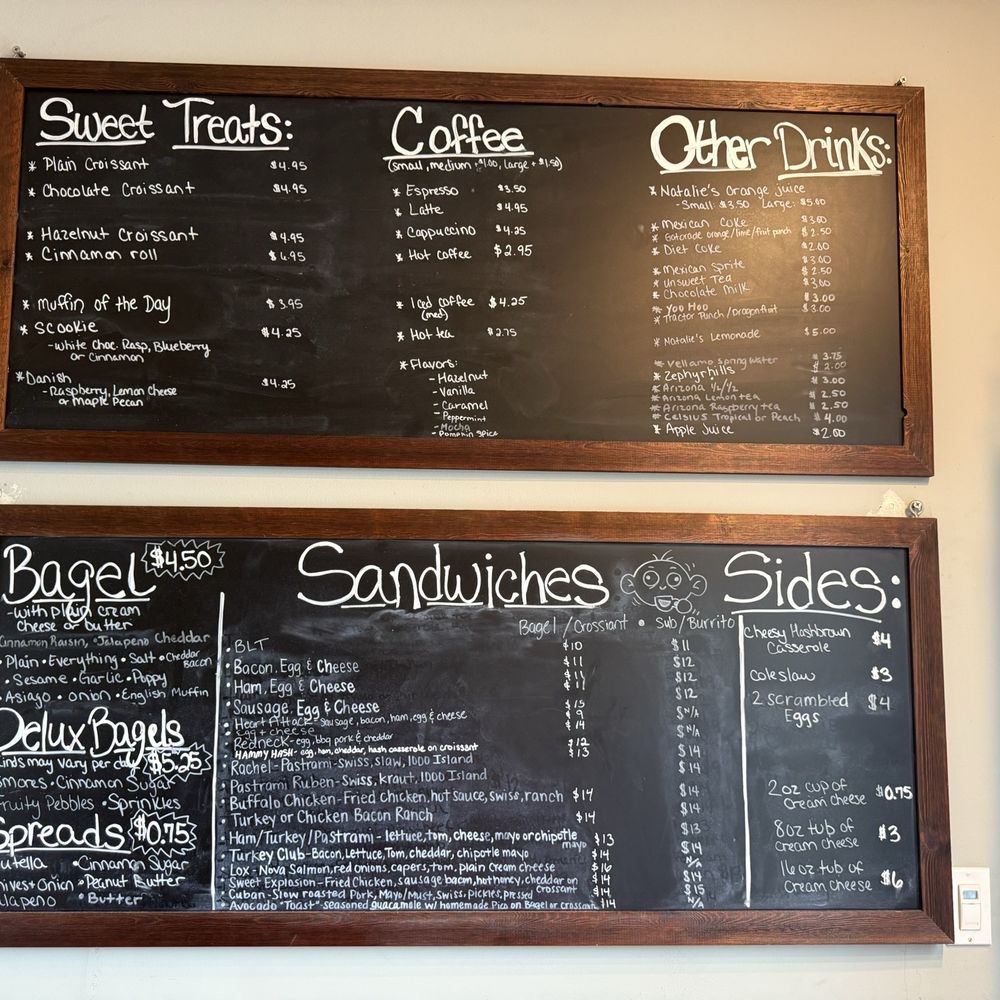 Sweet Treats:
* Plain Croissant $4.95
* Chocolate Croissant $4.95
* Hazelnut Croissant $4.95
* Cinnamon roll $4.95
* muffin of the Day $3.95
* SCOOKIE $4.25
-white choc. Rasp, Blueberry
or Cinnamon
*Danish $4.25
-Raspberry, Lemon Cheese
or Maple Pecan
Coffee
(small, medium +$1.00, large + $1.50)
* Espresso $3.50
* Latte $4.95
* Cappuccino $4.25
* Hot coffee $2.95
* Iced coffee $4.25
(med)
* Hot tea $2.75
* Flavors:
- Hazelnut
- Vanilla
- Caramel
- Peppermint
- Mocha
- Pumpkin Spice
Other Drinks:
* Natalie's Orange juice
-Small: $3.50 Large: $5.00
* Mexican Coke $3.00
* Gatorade orange/lime/fruit punch $2.50
* Diet Coke $2.00
* Mexican Sprite $3.00
* Unsweet Tea $2.50
* Chocolate Milk $3.00
* Yoo Hoo $3.00
* Tractor Punch/Dragonfruit $3.00
* Natalie's Lemonade $5.00
* Vellamo Spring Water $3.75
* Zephyrhills $2.00
* Arizona 1/2/1/2 $3.00
* Arizona Lemon tea $2.50
* Arizona Raspberry tea $2.50
* Celsius Tropical or Peach $4.00
* Apple Juice $2.00
Bagel $4.50
-with plain cream
cheese or butter
Cinnamon Raisin, •Jalapeno Cheddar
• Plain • Everything • Salt • Cheddar Bacon
• Sesame • Garlic • Poppy
• Asiago • Onion • English Muffin
Delux Bagels
Kinds may vary per day $5.25
Smores • Cinnamon Sugar
Fruity Pebbles • Sprinkles
Spreads $0.75
•Cinnamon Sugar
• Peanut Butter
• Butter
Sandwiches
Bagel/Crossiant • Sub/Burrito
• BLT $10 $11
• Bacon, Egg & Cheese $11 $12
• Ham, Egg & Cheese $11 $12
• Sausage, Egg & Cheese $12
• Heart Attack- Sausage, bacon, ham, egg & cheese $15 $N/A
• Egg + cheese $9
• Redneck- egg, bbq pork & cheddar $14 $N/A
• HAMMY HASH- egg, ham, cheddar, hash casserole on croissant $12
• Rachel- Pastrami-Swiss, slaw, 1000 Island $13 $14
• Pastrami Ruben-Swiss, kraut, 1000 Island $14
• Buffalo Chicken-Fried chicken, hot sauce, swiss, ranch $14 $14
• Turkey or Chicken Bacon Ranch $14 $14
• Ham/Turkey/Pastrami- lettuce, tom, cheese, mayo or chipotle mayo $13 $13
• Turkey Club-Bacon, Lettuce, Tom, cheddar, chipotle mayo $14 $14
• Lox- Nova Salmon, red onions, capers, tom, plain cream cheese $16 N/A
• Sweet Explosion-Fried Chicken, sausage bacon, hot honey, cheddar on croissant $14 $14
• Cuban-Slow roasted Pork, Mayo/Must, Swiss, pickles, pressed $14 $15
• Avocado "Toast"-seasoned guacamole w/ homemade Pico on Bagel or crossiant $14 N/A
Sides:
Cheesy Hashbrown $4
Casserole
Coleslaw $3
2 scrambled $4
Eggs
2oz cup of $0.75
cream cheese
8oz tub of $3
cream cheese
16oz tub of $6
cream cheese